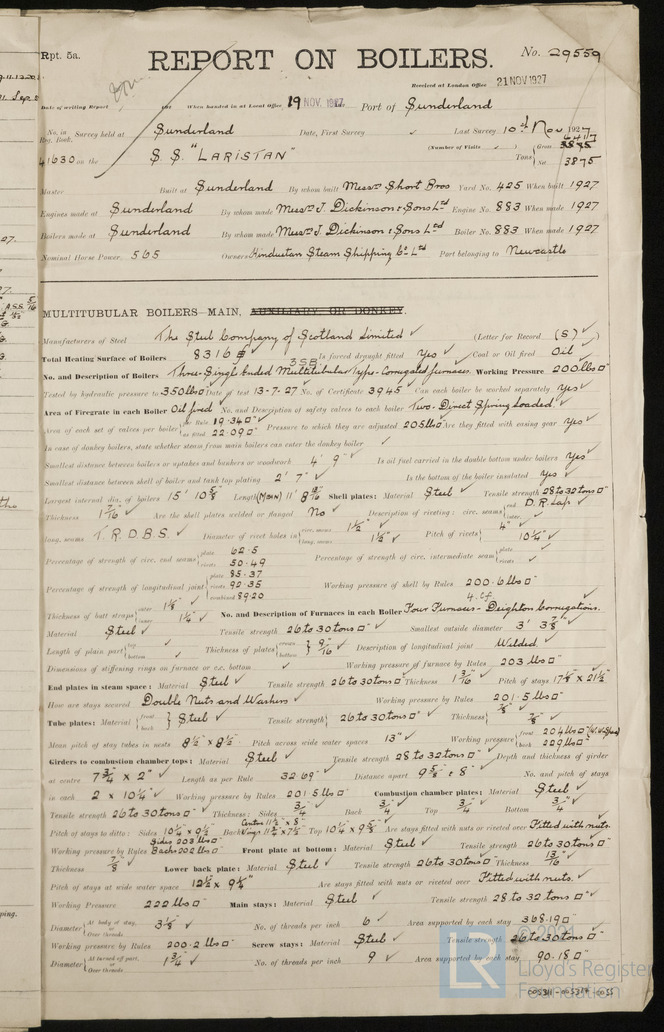 Rpt. 5a.
REPORT ON BOILERS.
No. 29559
Received at London Office 21 NOV 1927
Date of writing Report When handed in at Local Office 19 NOV. 1927 Port of Sunderland
No. in Reg. Book. Survey held at Sunderland Date, First Survey ✓ Last Survey 10th Nov 1927
(Number of Visits ✓ )
41630 on the S.S. "LARISTAN" Tons Gross 6417
Net 3875
Master Built at Sunderland By whom built Messrs Short Bros Yard No. 425 When built 1927
Engines made at Sunderland By whom made Messrs J. Dickinson & Sons Ltd Engine No. 883 When made 1927
Boilers made at Sunderland By whom made Messrs J. Dickinson & Sons Ltd Boiler No. 883 When made 1927
Nominal Horse Power 565 Owners Hindustan Steam Shipping Co. Ltd Port belonging to Newcastle
MULTITUBULAR BOILERS—MAIN, AUXILIARY OR DONKEY.
Manufacturers of Steel The Steel Company of Scotland Limited ✓ (Letter for Record (S) ✓ )
Total Heating Surface of Boilers 8316 3SB Is forced draught fitted Yes ✓ Coal or Oil fired Oil
No. and Description of Boilers Three-Single Ended Multitubular Type-Corrugated furnaces. Working Pressure 200 lbs □" ✓
Tested by hydraulic pressure to 350 lbs □" Date of test 13-7-27 No. of Certificate 3945 Can each boiler be worked separately yes ✓
Area of Firegrate in each Boiler Oil fired No. and Description of safety valves to each boiler Two-Direct Spring Loaded. ✓
Area of each set of valves per boiler per Rule 19.34 □" ✓
as fitted 22.09 □" Pressure to which they are adjusted 205 lbs □" Are they fitted with easing gear yes ✓
In case of donkey boilers, state whether steam from main boilers can enter the donkey boiler ✓
Smallest distance between boilers or uptakes and bunkers or woodwork 4' 9" Is oil fuel carried in the double bottom under boilers yes ✓
Smallest distance between shell of boiler and tank top plating 2' 7" ✓ Is the bottom of the boiler insulated yes ✓
Largest internal dia. of boilers 15' 10 5/8" Length (MAIN) 11' 8 9/16" Shell plates: Material Steel ✓ Tensile strength 28 to 32 tons □"
Thickness 1 7/16" ✓ Are the shell plates welded or flanged No ✓ Description of riveting: circ. seams end D.R. Lap ✓
inter. ✓
long. seams T.R.D.B.S. ✓ Diameter of rivet holes in circ. seams 1 1/2" ✓
1 1/2" ✓ Pitch of rivets 4"
10 1/4" ✓
Percentage of strength of circ. end seams plate 62.5
rivets 50.49 Percentage of strength of circ. intermediate seam plate ✓
rivets ✓
Percentage of strength of longitudinal joint plate 85.37
rivets 92.35
combined 89.20 Working pressure of shell by Rules 200.6 lbs □"
Thickness of butt straps outer 1 1/8" ✓
inner 1 1/4" ✓ No. and Description of Furnaces in each Boiler 4.C.f. Four Furnaces-Deighton Corrugations.
Material Steel ✓ Tensile strength 26 to 30 tons □" ✓ Smallest outside diameter 3' 3 7/8" ✓
Length of plain part top ✓
bottom ✓ Thickness of plates crown
bottom 9/16" ✓ Description of longitudinal joint Welded. ✓
Dimensions of stiffening rings on furnace or c.c. bottom ✓ Working pressure of furnace by Rules 203 lbs □"
End plates in steam space: Material Steel ✓ Tensile strength 26 to 30 tons □" Thickness 1 3/16" ✓ Pitch of stays 17 7/8 x 21 1/2"
How are stays secured Double Nuts and Washers ✓ Working pressure by Rules 201.5 lbs □"
Tube plates: Material front
back Steel ✓ Tensile strength 26 to 30 tons □" ✓ Thickness 7/8" ✓
7/8" ✓
Mean pitch of stay tubes in nests 8 1/2" x 8 1/2" Pitch across wide water spaces 13" ✓ Working pressure front 204 lbs □" (W.W. Space)
back 229 lbs □" ✓
Girders to combustion chamber tops: Material Steel ✓ Tensile strength 28 to 32 tons □" ✓ Depth and thickness of girder
at centre 7 3/4" x 2" ✓ Length as per Rule 32.69" Distance apart 9 5/8" & 8" ✓ No. and pitch of stays
in each 2 x 10 1/4" ✓ Working pressure by Rules 201.5 lbs □" Combustion chamber plates: Material Steel ✓
Tensile strength 26 to 30 tons □" ✓ Thickness: Sides 3/4" ✓ Back 3/4" ✓ Top 3/4" ✓ Bottom 3/4" ✓
Pitch of stays to ditto: Sides 10 1/4" x 9 1/2" Back Centre 11 1/2" x 8"
Wings 11 3/4" x 7 1/2" Top 10 1/4" x 9 5/8" Are stays fitted with nuts or riveted over Fitted with nuts.
Working pressure by Rules Sides 203 lbs □"
Backs 202 lbs □" Front plate at bottom: Material Steel ✓ Tensile strength 26 to 30 tons □"
Thickness 7/8" ✓ Lower back plate: Material Steel ✓ Tensile strength 26 to 30 tons □" ✓ Thickness 13/16" ✓
Pitch of stays at wide water space 12 1/2" x 9 1/2" Are stays fitted with nuts or riveted over Fitted with nuts. ✓
Working Pressure 222 lbs □" Main stays: Material Steel ✓ Tensile strength 28 to 32 tons □" ✓
Diameter At body of stay, or Over threads 3 1/8" ✓ No. of threads per inch 6 ✓ Area supported by each stay 368.19 □"
Working pressure by Rules 200.2 lbs □" Screw stays: Material Steel ✓ Tensile strength 26 to 30 tons □" ✓
Diameter At turned off part, or Over threads 1 3/4" ✓ No. of threads per inch 9 ✓ Area supported by each stay 90.18 □" ✓
© 2021
LR
Lloyd's Register
Foundation